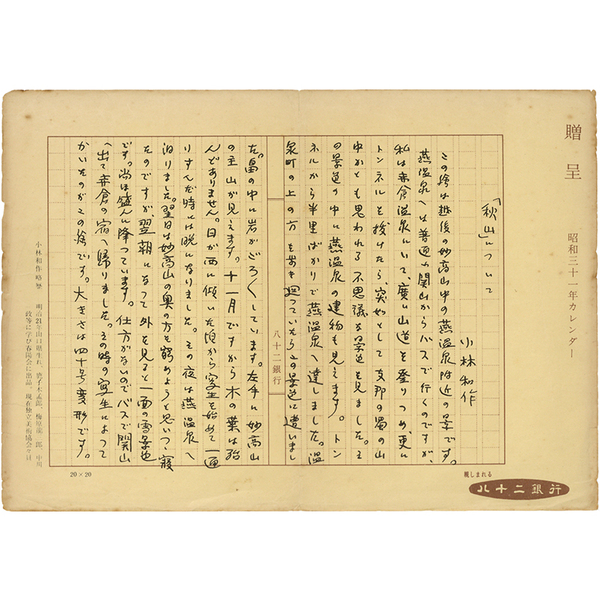 贈呈
昭和三十一年カレンダー
「秋山」について
小林和作
この絵は越後の妙高山中の燕温泉附近の景です。
燕温泉へは普通は関山からバスで行くのですが、
私は赤倉温泉にいて、度々山道を登りつめ、更に
トンネルを抜けたら、突如として支那の蜀の山
中かとも思われる不思議な景色を見ました。
の景色の中に燕温泉の建物も見えます。トン
ネルから半里ばかりで燕温泉へ達しました。温
泉町の上の方を歩き廻っていたらこの景色に遭いまし
八十二銀行
た。畠の中に岩がごろごろしています。左手に妙高山
の主山が見えます。十一月ですから木の葉は殆
んどありません。日が西に傾いた頃から写生を始めて一通
りすんだ時には晩になりました。その夜は燕温泉へ
泊りました。翌日は妙高山の奥の方を窮めようと思いつゝ寝
たのですが翌朝になって外を見ると一面の雪景色
です。尚は盛んに降っています。仕方がないのでバスで関山
へ出て赤倉の宿へ帰りました。その時の写生によって
かいたのがこの絵です。大きさは四十号変形です。
小林和作略歴
明治21年山口県生れ
梅原龍三郎、中川
政等に学び春陽会に出品、現在独立美術協会々員
20×20
親しまれる
八十二銀行